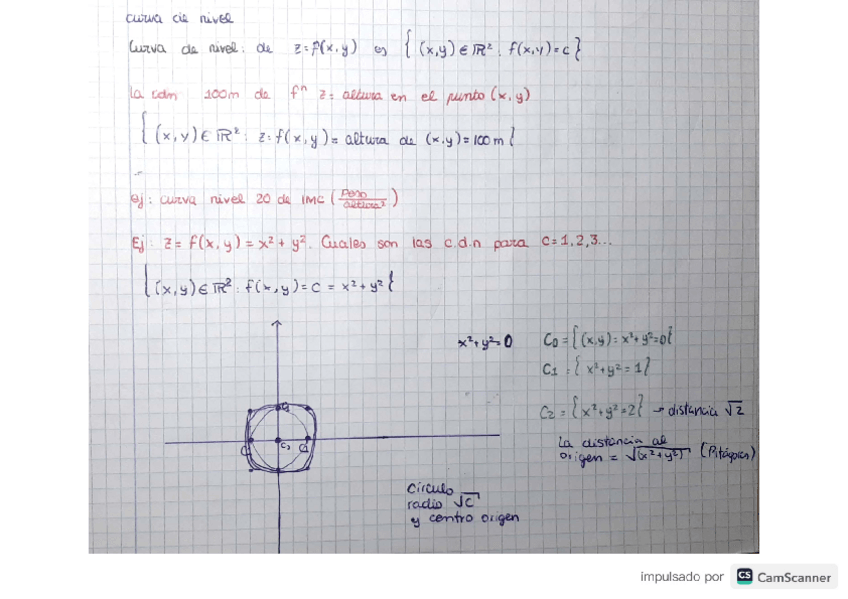 curva de nivel
Curva de nivel: de z=f(x,y) es {(x,y)∈ℝ²: f(x,y)=c}
la cdn 100m de fⁿ z= altura en el punto (x,y)
{(x,y)∈ℝ²: z=f(x,y)= altura de (x,y)=100m}
ej: curva nivel 20 de IMC (Peso/altura²)
Ej: z= f(x,y) = x²+y². Cuales son las c.d.n para c=1,2,3...
{(x,y)∈ℝ²: f(x,y)=c = x²+y²}
x²+y²=0
C₀={(x,y): x²+y²=0}
C1={x²+y²=1}
C2={x²+y²=2} → distancia √2
La distancia al
origen = √(x²+y²) (Pitágoras)
Círculo
radio √C
y centro origen
impulsado por CS CamScanner